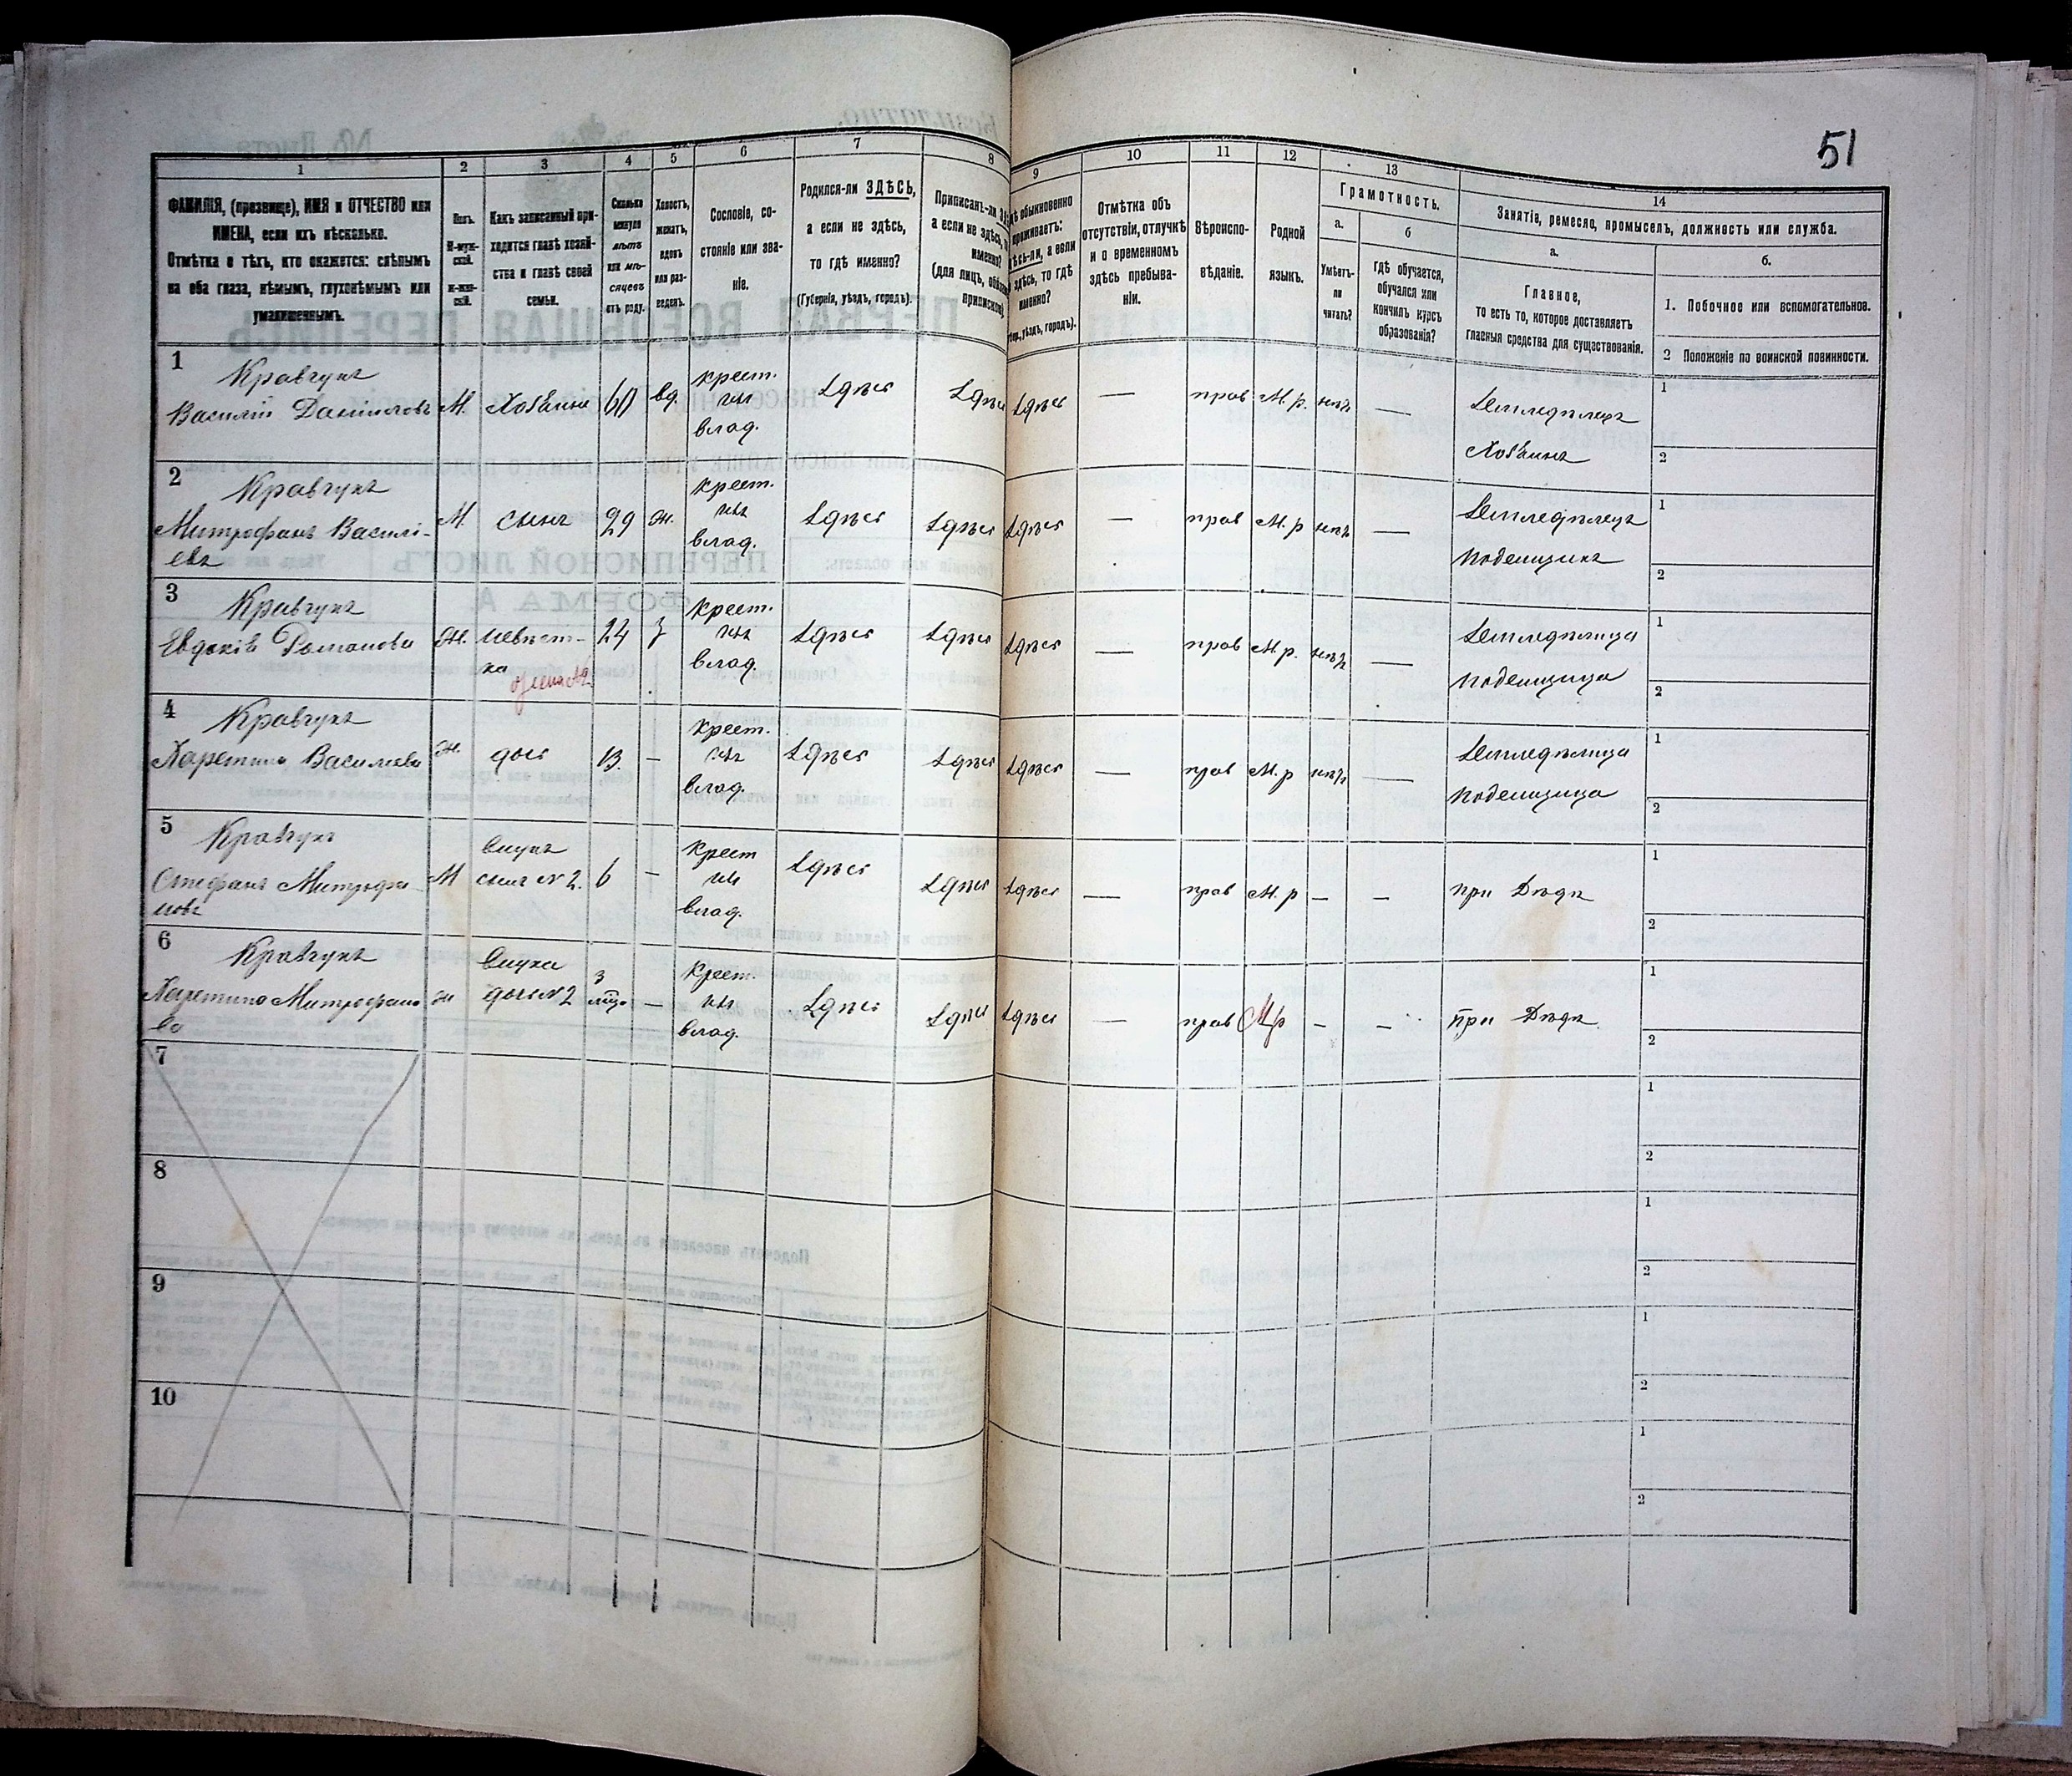 51
1
2
3
4
5
6
7
8
9
10
11
12
13
14
ФАМИЛІЯ, (прозвище), ИМЯ и ОТЧЕСТВО или
ИМЕНА, если ихъ нѣсколько.
Отмѣтка о тѣхъ, кто окажется: слѣпымъ
на оба глаза, нѣмымъ, глухонѣмымъ или
умалишеннымъ.
Полъ.
М-муж-
ской.
Ж-жен-
скій.
Какъ записанный при-
ходится главѣ хозяй-
ства и главѣ своей
семьи.
Сколько
минуло
лѣтъ
или мѣ-
сяцевъ
отъ роду.
Холостъ,
женатъ,
вдовъ
или раз-
веденъ.
Сословіе, со-
стояніе или зва-
ніе.
Родился-ли ЗДѢСЬ,
а если не здѣсь,
то гдѣ именно?
(Губернія, уѣздъ, городъ).
Приписанъ-ли
а если не здѣсь,
именно?
(для лицъ,
обыкновенно
проживаетъ:
а если
здѣсь, то гдѣ
именно?
уѣздъ, городъ).
Отмѣтка объ
отсутствіи, отлучкѣ
и о временномъ
здѣсь пребыва-
ніи.
Вѣроиспо-
вѣданіе.
Родной
языкъ.
Грамотность.
а.
б
Умѣетъ-
ли
читать?
гдѣ обучается,
обучался или
кончилъ курсъ
образованія?
Занятіе, ремесло, промыселъ, должность или служба.
а.
б.
Главное,
то есть то, которое доставляетъ
главныя средства для существованія.
1. Побочное или вспомогательное.
2 Положеніе по воинской повинности.
1
Кравчукъ
Василій Даніиловъ М. Хозяинъ 60 вд. крест. изъ влад. Здѣсь Здѣсь Здѣсь — прав М. р. нѣтъ — Земледѣлецъ
Хозяинъ
1
2
2
Кравчукъ
Митрофанъ Василі-
евъ М. сынъ 29 ж. крест. изъ влад. Здѣсь Здѣсь Здѣсь — прав М. р нѣтъ — Земледѣлецъ
поденщикъ
1
2
3
Кравчукъ
Евдокія Романова Ж. невѣст-
ка жена №2 24 з крест. изъ влад. Здѣсь Здѣсь Здѣсь — прав М. р. нѣтъ — Земледѣлица
поденщица
1
2
4
Кравчукъ
Харетина Василиева ж. дочь 13 — крест. изъ влад. Здѣсь Здѣсь Здѣсь — прав М. р нѣтъ — Земледѣлица
поденщица
1
2
5
Кравчукъ
Стефанъ Митрофа-
новъ М внукъ
сынъ N 2. 6 — крест изъ влад. Здѣсь Здѣсь Здѣсь — прав М. р — — при Дѣдѣ
1
2
6
Кравчукъ
Харетина Митрофано
ва ж внука
дочь N 2 3 мѣс. — крест. изъ влад. Здѣсь Здѣсь Здѣсь — прав М р — — при Дѣдѣ.
1
2
7
1
2
8
1
2
9
1
2
10
1
2